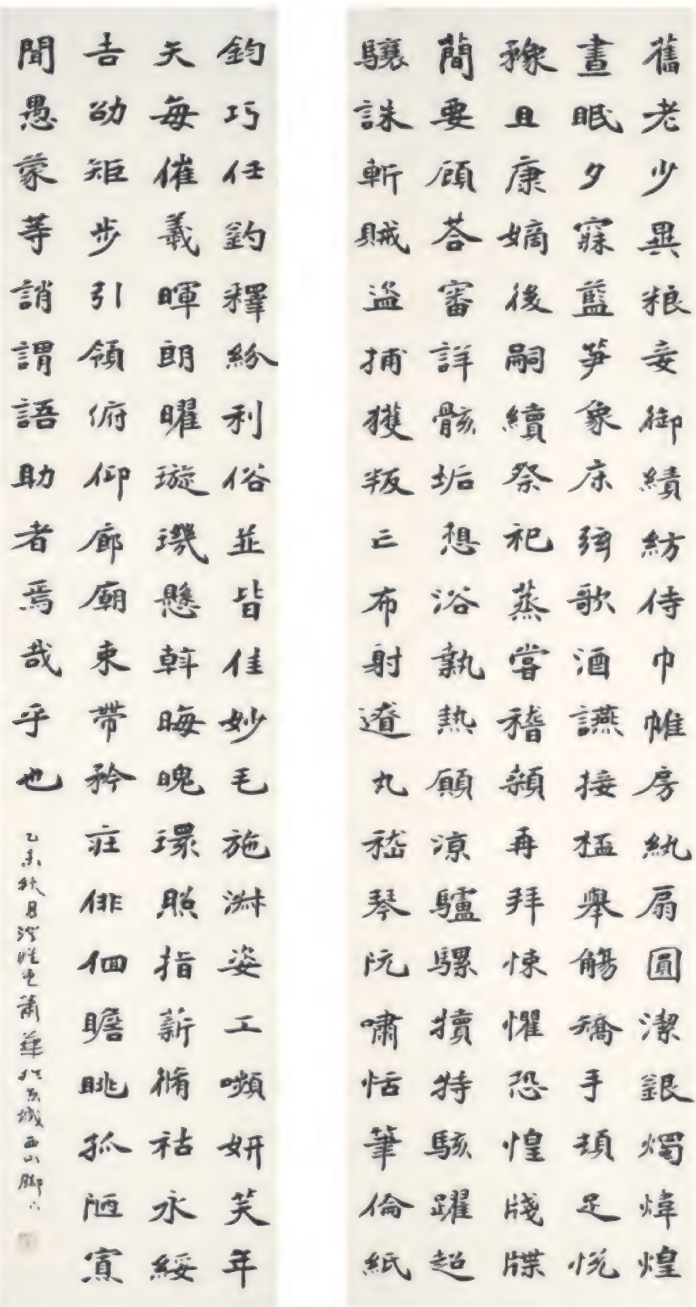 舊老少異粮妾御績紡侍巾帷房紈扇圓潔銀燭煒煌
晝眠夕寐藍笋象床弦歌酒讌接杯舉觴矯手頓足悅
豫且康嫡後嗣續祭祀蒸嘗稽顙再拜悚懼恐惶牋牒
簡要顧荅審詳骸垢想浴執熱願涼驢騾犢特駭躍超
驤誅斬賊盜捕獲叛亡布射遼丸嵇琴阮嘯恬筆倫紙
鈞巧任釣釋紛利俗並皆佳妙毛施淑姿工嚬妍笑年
矢每催羲暉朗曜璇璣懸斡晦魄環照指薪脩祜永綏
吉劭矩步引領俯仰廊廟束帶矜莊徘徊瞻眺孤陋寡
聞愚蒙等誚謂語助者焉哉乎也
乙未秋月澄懷堂蕭華於京城西山腳下